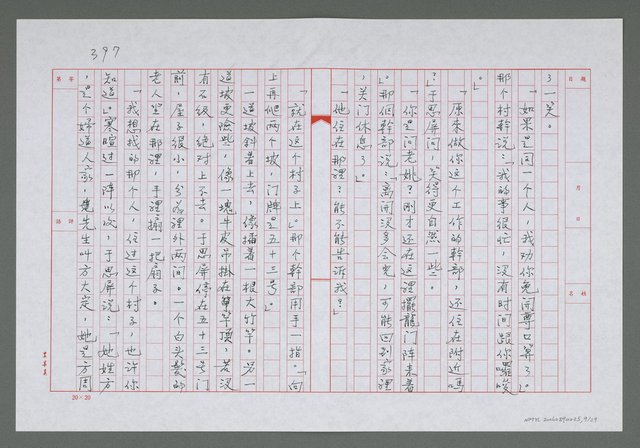 397
了一笑。
「如果是問一个人，我劝你免開尊口算了。」
那个村幹說：「我的事很忙，沒有时間跟你囉唆
。」
「原來做你這个工作的幹部，还住在附近嗎
？」于思屏問，笑得更自然一些。
「你是問老姚？剛才还在這裡擺龍门阵來着
。」那個幹部說：「离開沒多会兒，可能回到家裡
，关门休息了。」
「他住在那裡？能不能告訴我？」
「就在这个村子上。」那个幹部用手一指。「向
上再爬两个坡，门牌是五十三号。」
一道坡斜着上去，像插着一根大竹竿。另一
道坡更險些，像一塊牛皮吊掛在竿頂，若沒
有石級，绝对上不去。于思屏停在五十三号门
前，屋子很小，分爲裡外两间。一个白头髮的
老人坐在那裡，手裡搧一把扇子。
「我想找的那个人，住过這个村子，也许你
知道。」寒暄过一阵以後，于思屏說：「她姓方
，是个婦道人家，先生叫方大定，她是方周
題目
月 日
姓名
等第
評語
20×20
NMTL 20060890025, 9/29